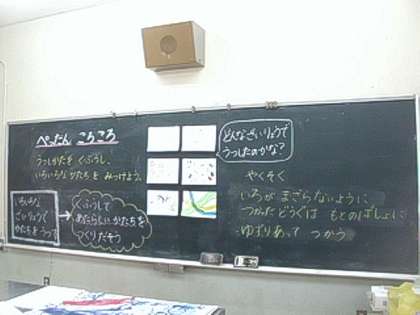 ぺったん ころころ
うつしかたを くふうし、
いろいろなかたちを みつけよう。
いろいろな
ざいりょうで
かたちをうつす
→
くふうして
あたらしいかたちを
つくりだそう
どんなざいりょうで
うつしたのかな?
やくそく
いろが まざらないように
つかったどうぐは もとのばしょに
ゆずりあって つかう